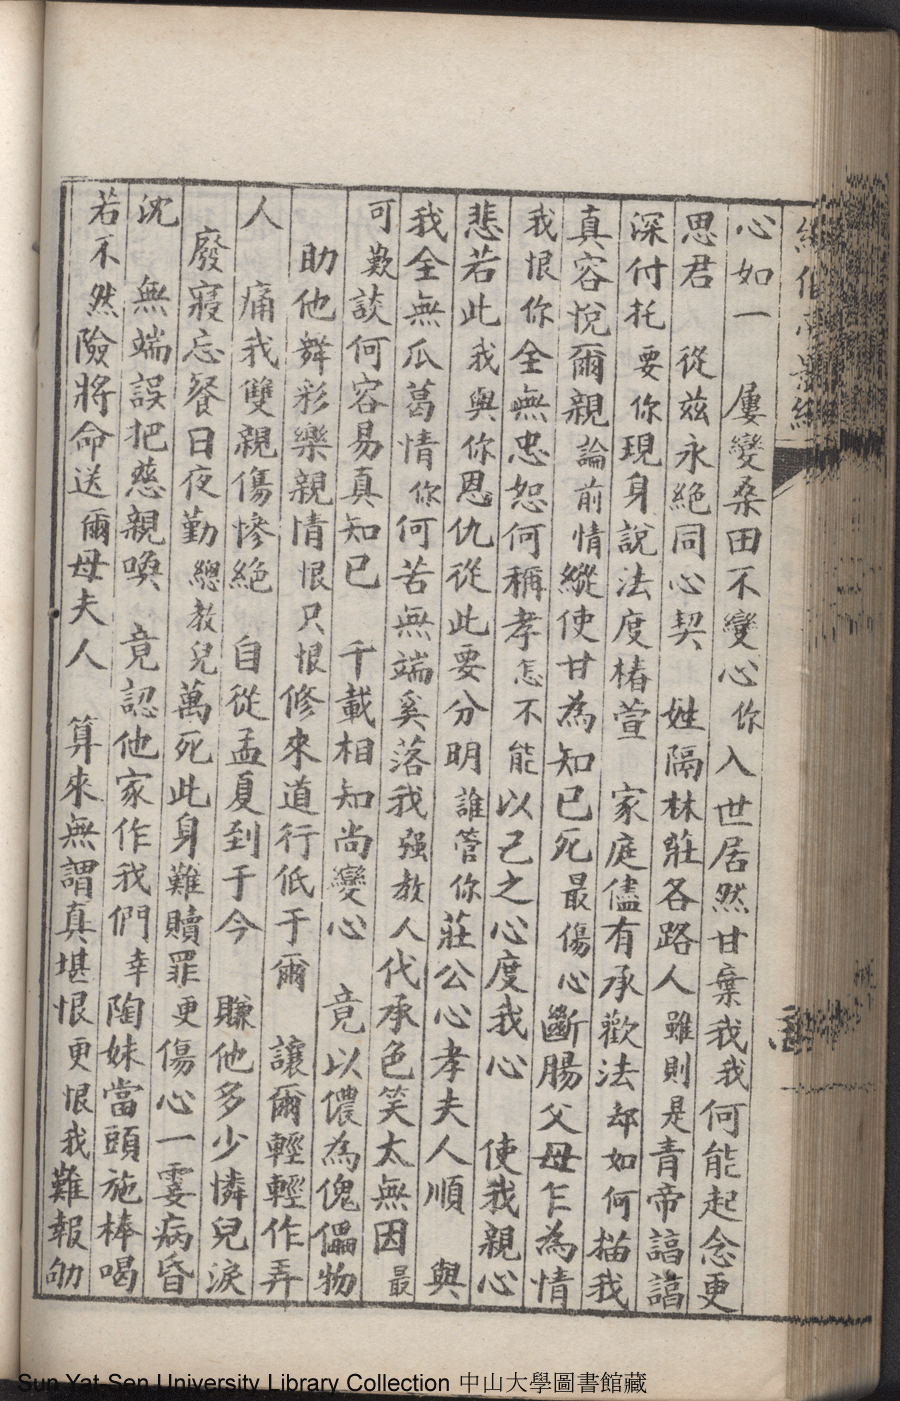 心如一　屢變桑田不變心你入世居然甘棄我我何能起念更
思君　從茲永絕同心契　姓隔林莊各路人雖則是青帝諄諄
深付托要你現身說法度椿萱　家庭儘有承歡法却如何描我
真容悅爾親論前情縱使甘為知已死最傷心斷腸父母乍為情
我恨你全無忠恕何稱孝怎不能以己之心度我心　使我親心
悲若此我與你恩仇從此要分明誰管你莊公心孝夫人順　與
我全無瓜葛情你何苦無端奚落我强教人代承色笑太無因最
可歎談何容易真知已　千載相知尚變心　竟以儂為傀儡物
助他舞彩樂親情恨只恨修來道行低于爾　讓爾輕輕作弄
人　痛我雙親傷慘絕　自從孟夏到于今　賺他多少憐兒淚
廢寢忘餐日夜勤總教兒萬死此身難贖罪更傷心一霎病昏
沈　無端誤把慈親喚　竟認他家作我們幸陶妹當頭施棒喝
若不然險將命送爾母夫人　算來無謂真堪恨更恨我難報劬
Sun Yat-Sen University Library Collection 中山大學圖書館藏